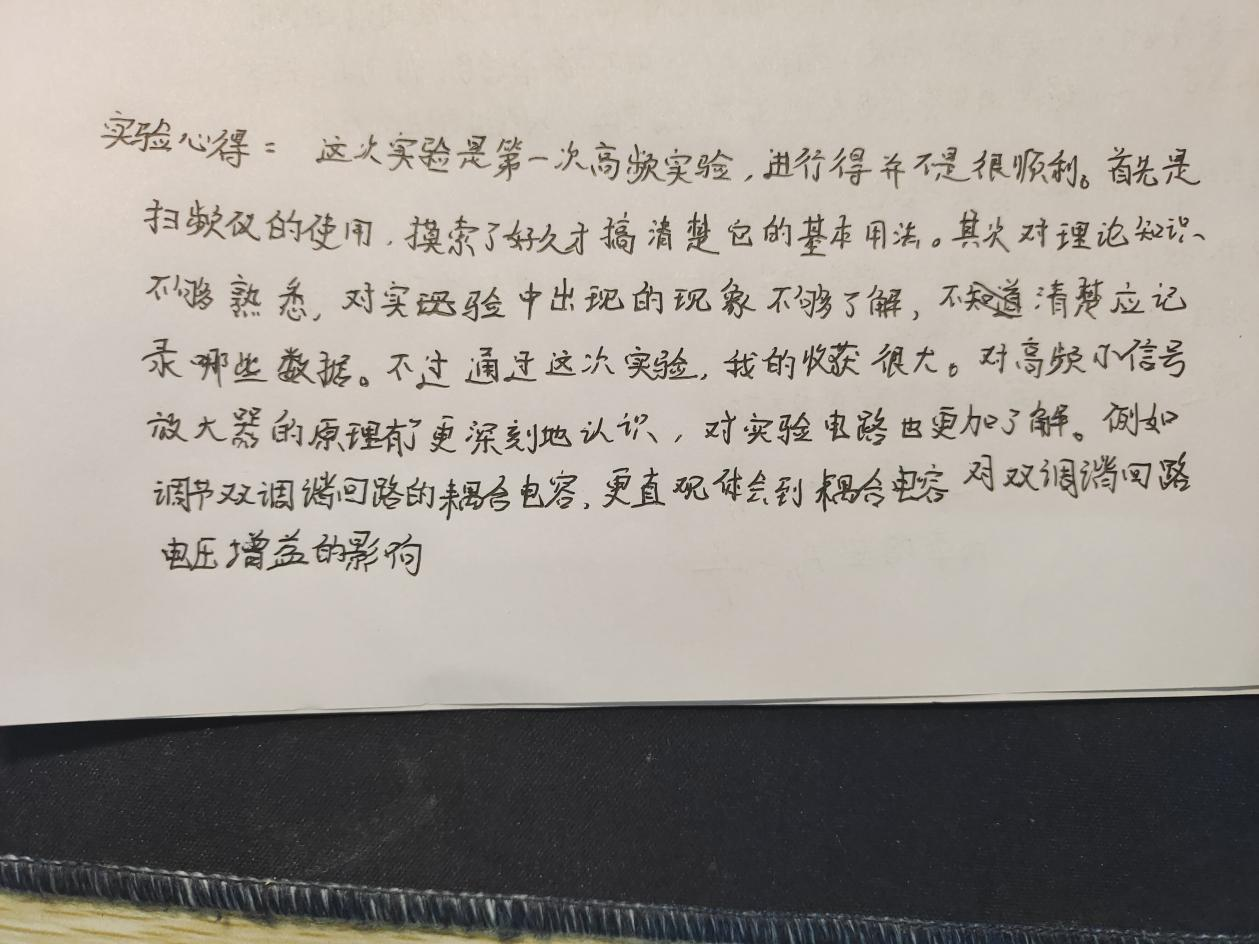 实验心得: 这次实验是第一次高频实验,进行得并不是很顺利。首先是
扫频仪的使用,摸索了好久才搞清楚它的基本用法。其次对理论知识
不够熟悉,对实验中出现的现象不够了解,不清楚应记
录哪些数据。不过通过这次实验,我的收获很大。对高频小信号
放大器的原理有了更深刻地认识,对实验电路也更加了解。例如
调节双调谐回路的耦合电容,更直观体会到耦合电容对双调谐回路
电压增益的影响